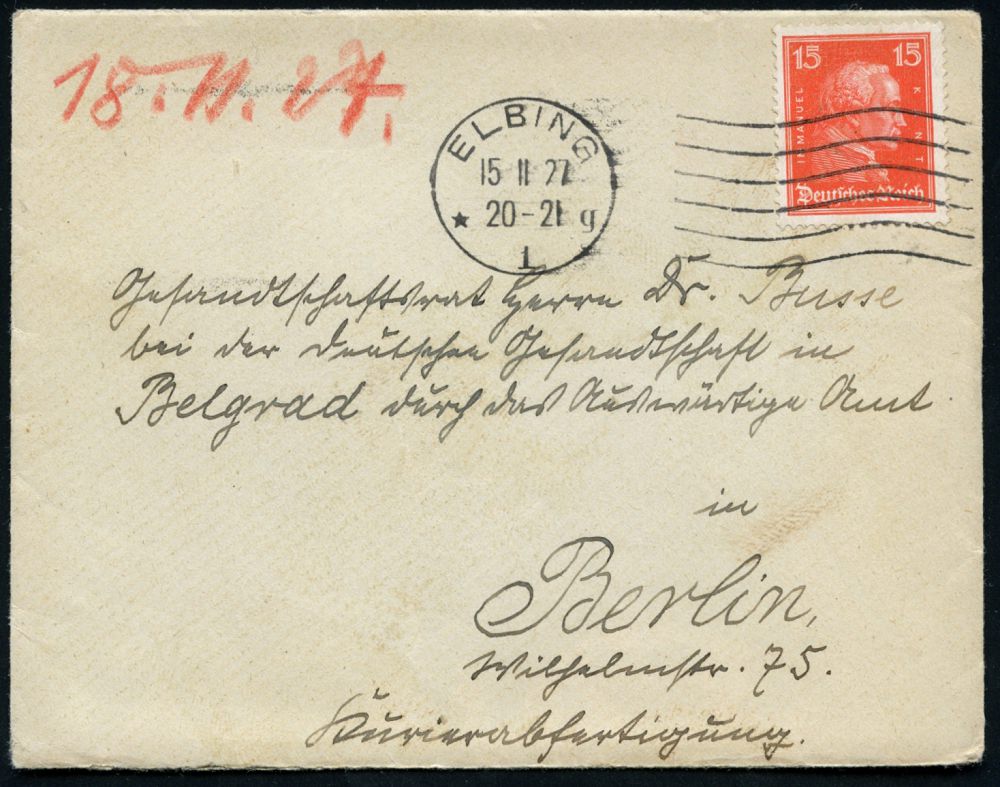 18.11.27.
15 15
IMMANUEL KANT
Deutsches Reich
ELBING
15 11 27
★ 20-21 g
1
Gesandtschaftsrat Herrn Dr. Busse
bei der Deutschen Gesandtschaft in
Belgrad durch das Auswärtige Amt
in
Berlin,
Wilhelmstr. 75.
Kurierabfertigung.